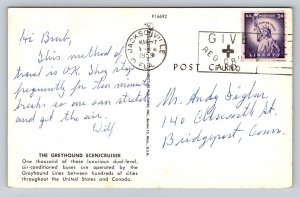 P16692
JACKSONVILLE
FLA.
GIVE
RED CROSS
3¢
LIBERTY
POST CARD
Hi Bub,
This method of
travel is O.K. They stop
frequently for ten minute
breaks so one can stretch
and get the air.
Will
Mr. Andy
140 Ellsworth St.
Bridgeport, Conn.
THE GREYHOUND SCENICRUISER
One thousand of these luxurious dual-level,
air-conditioned buses are operated by the
Greyhound Lines between hundreds of cities
throughout the United States and Canada.